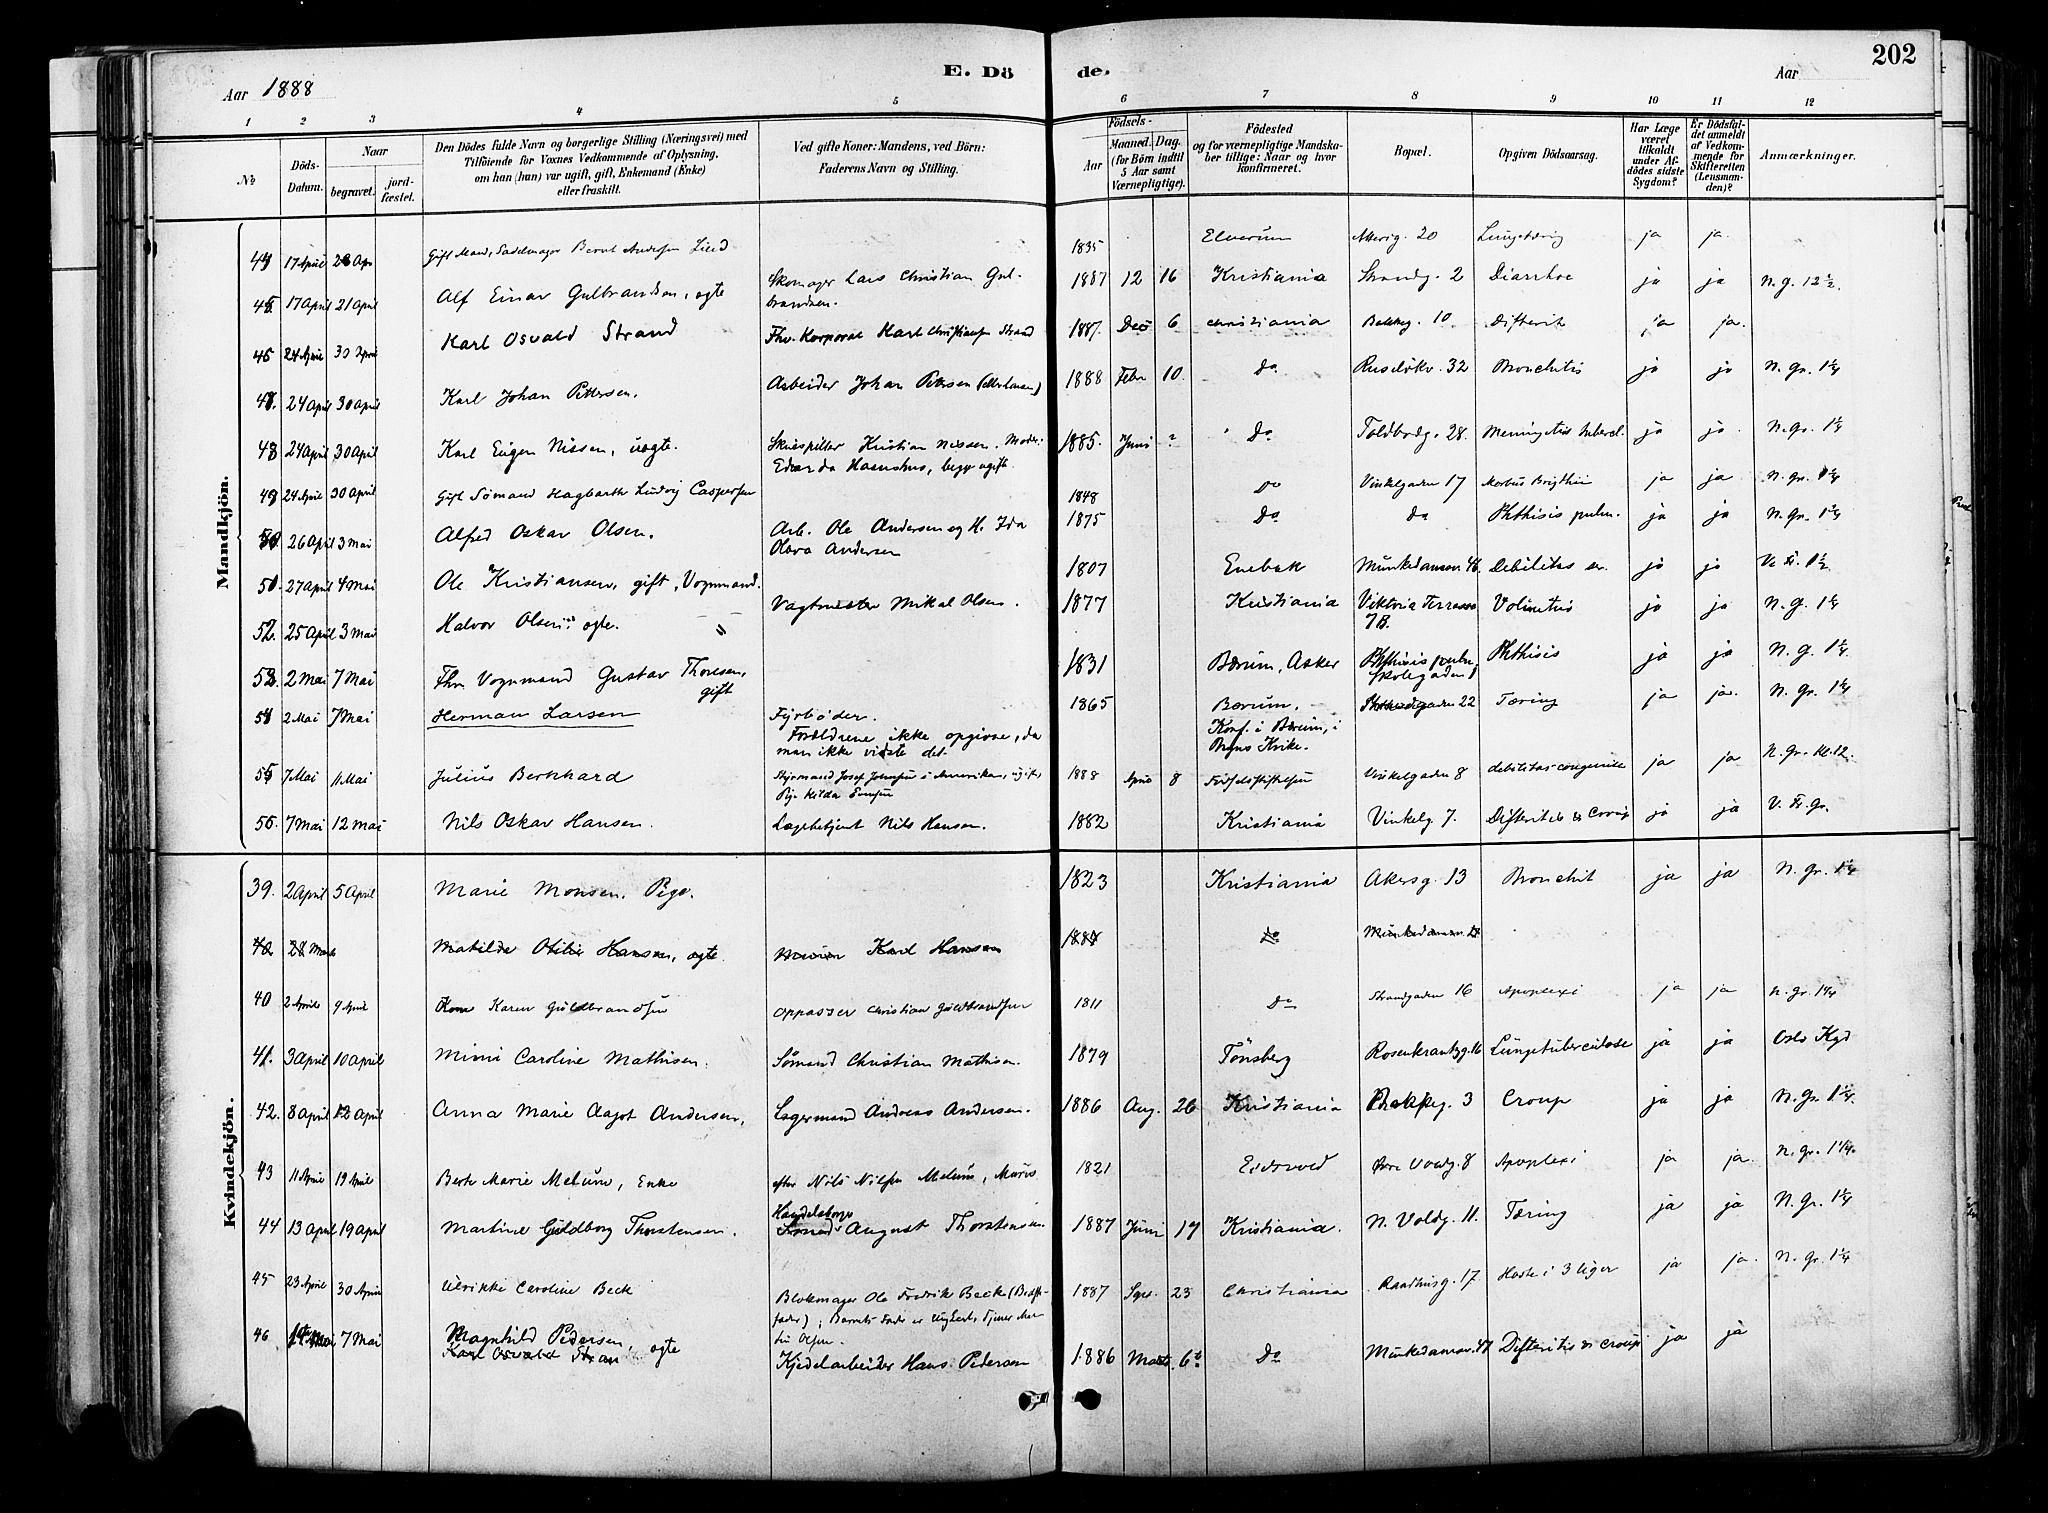 202
E. Dö de.
Aar 1888
Aar
1 2 3 4 5 6 7 8 9 10 11 12
No
Döds-Datum.
Naar
begravet.
jord-fæstet.
Den Dödes fulde Navn og borgerlige Stilling (Næringsvei) med
Tilföiende for Voxnes Vedkommende af Oplysning,
om han (hun) var ugift, gift, Enkemand (Enke)
eller fraskilt.
Ved gifte Koner: Mandens, ved Börn:
Faderens Navn og Stilling.
Födsels-
Aar
Maaned. Dag.
(for Börn indtil
5 Aar samt
Værnepligtige).
Födested
og for værnepligtige Mandska-
ber tillige: Naar og hvor
konfirmeret.
Bopæl.
Opgiven Dödsaarsag.
Har Læge
været
tilkaldt
under Af-
dödes sidste
Sygdom?
Er Dödsfal-
det anmeldt
af Vedkom-
mende for
Skifteretten
(Lensman-
den)?
Anmærkninger.
Mandkjön.
44 17 April Gift Mand, Sadelmager Bernt Andersen Lied 1835 Elverum 20 ja ja
45 17 April 21 April Alf Einar Gulbrandsen, ægte Skomager Lars Christian Gul- 1887 12 16 Kristiania Strandg. 2 Diarrhoe ja ja N. g. 12 1/2
brandsen.
24 April 30 April Karl Osvald Strand Fhv. Korporal Karl Christiansen Strand 1887. Dec 6 Christiania 10 Difterit ja ja.
47. 24 April 30 April Karl Johan Pettersen. Arbeider Johan Petersen 1888 Febr 10. Do Ruselökv. 32 Bronchitis ja ja N. Gr. 1 1/4
48 24 April 30 April Karl Eugen Nissen, uægte. Skuespiller Kristian Nissen. Moder: 1885. Juni ? Do Toldbodg. 28. Meningitis tubercl. ja ja. N. Gr. 1 1/4
49 24 April 30 April Gift Sømand Hagbarth Ludvig Caspersen 1848 Do Vinkelgaden 17 Morbus Brigthii ja ja N. gr. 1 1/4
50 26 April 3 Mai Alfred Oskar Olsen. Arb. Ole Andersen og H. Ida 1875 Do Do Phthisis pulm. ja ja N. Gr. 1 1/4
Andersen
51. 27 April 4 Mai Ole Kristiansen, gift, Vognmand. 1807 Enebak Munkedamsv. 46. Debilitas sen. ja ja V. Fr. 1 1/2
52. 25 April 3 Mai Halvor Olsen, ægte. Vagtmester Mikal Olsen. 1877 Kristiania Viktoria Terrasse ja ja N. G. 1 1/4
7B.
53. 2 Mai 7 Mai Fhv. Vognmand Gustav Thoresen, 1831 Bærum, Asker Phthisis pulm. Phthisis ja ja N. G. 1 1/4
gift Skolegaden
54 2 Mai 7 Mai Herman Larsen Fyrbøder. 1865 Bærum. 22 Tæring ja ja. N. Gr. 1 1/4
Forældrene ikke opgivne, da Konf. i Bærum, i
man ikke vidste det. Bryns Kirke.
55 7 Mai 11 Mai Julius Bernhard Styrmand Josef Johnsen i Amerika, ugift 1888 April 8 Födselsstiftelsen Vinkelgaden 8 debilitas congenita ja ja N. Gr. Kl. 12.
Pige Hilda
56. 7 Mai 12 Mai Nils Oskar Hansen. Lagerbetjent Nils Hansen. 1882 Kristiania Vinkelg. 7. Difteritis & Croup ja ja V. Fr. Gr.
Kvindekjön.
39. 2 April 5 April Marie Monsen. Pige. 1823 Kristiania Akersg. 13 Bronchit ja ja N. Gr. 1 1/4
40 28 Marts Matilde Otilie Hansen, ægte. Karl Hansen Do
40 2 April 9 April Kone Karen Guldbrandsen Oppasser Christian Guldbrandsen 1811 Do Strandgaden 16 Apoplexi ja ja N. gr. 1 1/4
41. 3 April 10 April Mimi Caroline Mathisen. Sømand Christian Mathisen. 1879 Tönsberg Rosenkrantzg. 16 Lungetuberculose ja ja Oslo Kgd
42. 8 April 12 April Anna Marie Aagot Andersen, Lagermand Andreas Andersen. 1886 Aug. 26 Kristiania 3 Croup ja ja N. Gr. 1 1/4.
43 11 April 19 April Berte Marie Melum, Enke efter Nils Nilsen Melum, Murer 1821 Eidsvold Voldg. 8 Apoplexi ja ja. N. gr. 1 1/4.
44 13 April 19 April Martine Guldborg Thorstensen. August Thorstensen 1887 Juni 17 Kristiania. N. Voldg. 11. Tæring ja ja N. Gr. 1 1/4
45 23 April 30 April Ulrikke Caroline Beck Blokmager Ole Fredrik Beck (Bedste- 1887 Sept. 23 Christiania Raadhusg. 17. Hoste i 3 Uger ja ja. N. Gr. 1 1/4
fader); Barnets Fader er
46 7 Mai Magnhild Pedersen, ægte Kjedelarbeider Hans Pedersen 1886 Marts 6 Do Munkedamsv. 47 Difteritis & Croup ja ja
Karl Osvald Stran